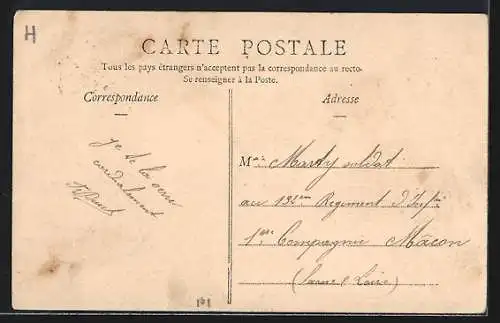 H
CARTE POSTALE
Tous les pays étrangers n'acceptent pas la correspondance au recto.
Se renseigner à la Poste.
Correspondance
Adresse
je te la serre
cordialement
M Marty soldat
au Regiment d'Inf
1ère Compagnie Mâcon
(Saone & Loire)